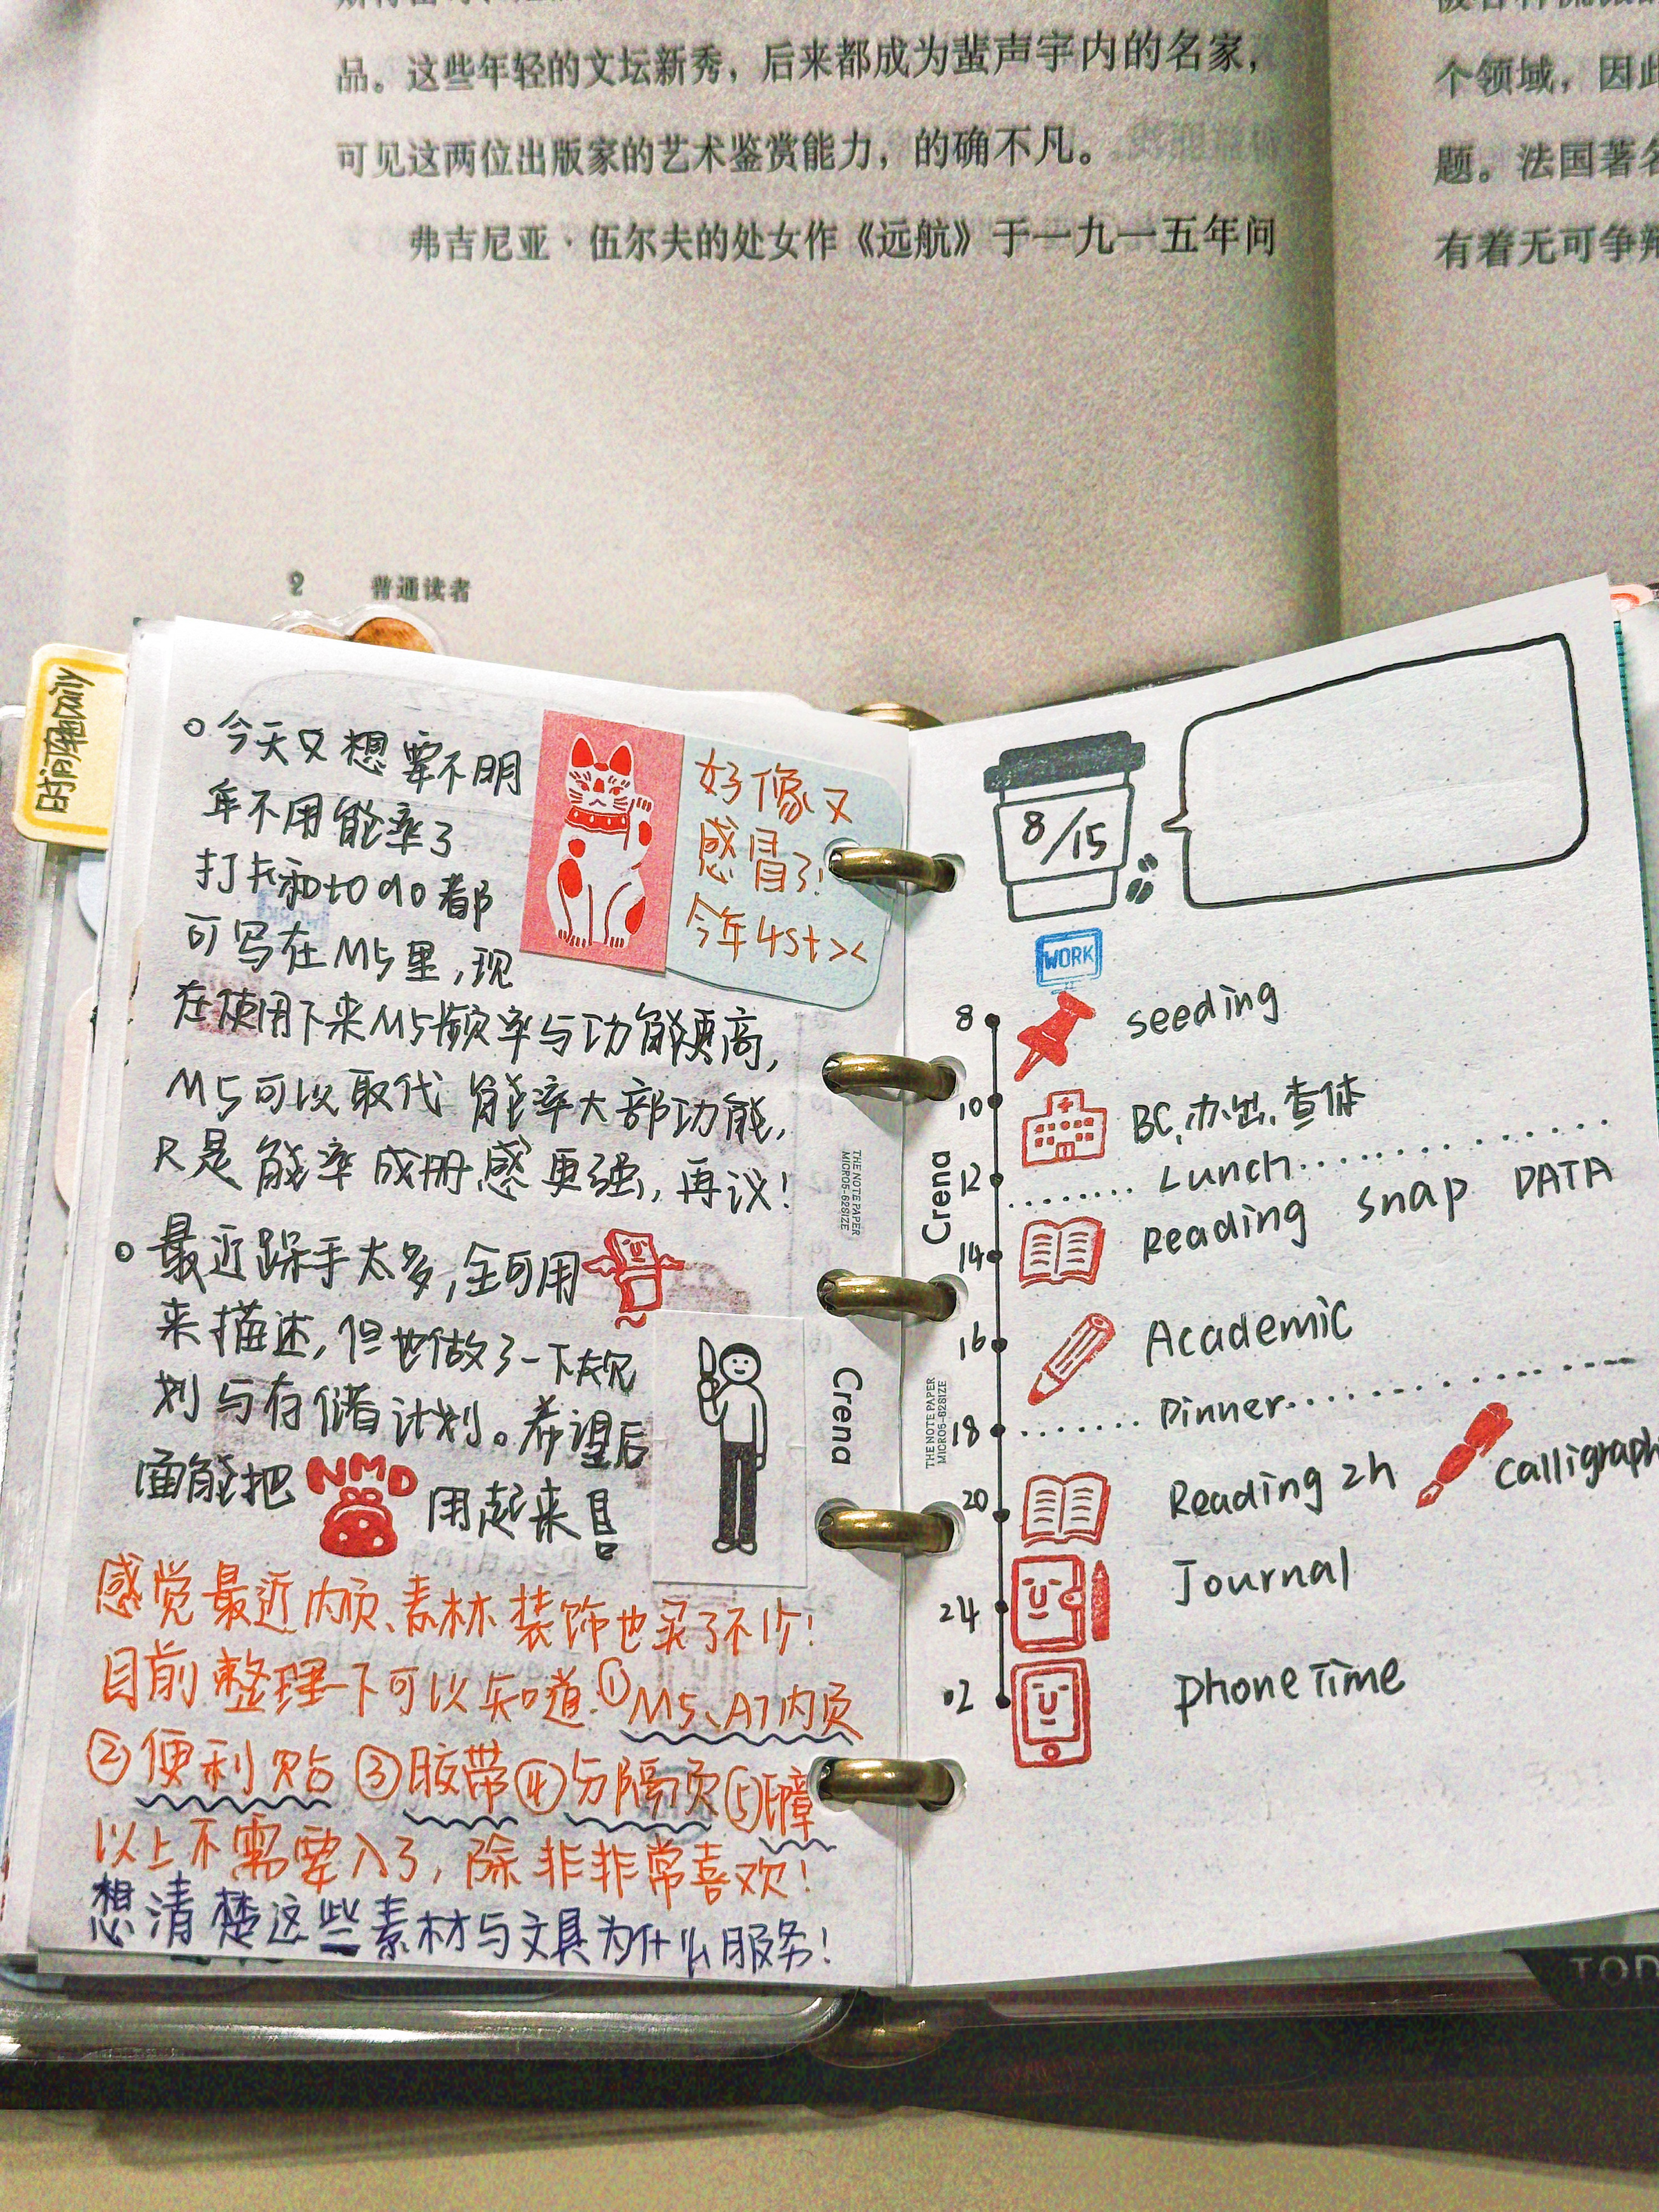 品。这些年轻的文坛新秀，后来都成为蜚声宇内的名家，
可见这两位出版家的艺术鉴赏能力，的确不凡。
弗吉尼亚·伍尔夫的处女作《远航》于一九一五年问
2 普通读者
个领域，因此
题。法国著名
有着无可争辩
时间轴Daily
今天又想要不明
年不用能率了
打卡和to do都
可写在M5里，现
在使用下来M5频率与功能更高，
M5可以取代能率大部功能，
只是能率成册感更强，再议！
好像又
感冒了！
今年4st ><
最近跺手太多，全可用
来描述，但也做了一下规
划与存储计划。希望后
面能把 NMD 用起来
感觉最近内页、素材、装饰也买了不少！
目前整理一下可以知道：①M5、A7内页
②便利贴 ③胶带 ④分隔页 ⑤印章
以上不需要入了，除非非常喜欢！
想清楚这些素材与文具为什么服务！
THE NOTE PAPER
MICRO5-62SIZE
Crena
8/15
WORK
8 seeding
10 BC、办出、查体
12 Lunch
14 Reading snap DATA
16 Academic
18 Dinner
20 Reading 2h
Journal
24
02 phone Time
Crena
THE NOTE PAPER
MICRO5-62SIZE